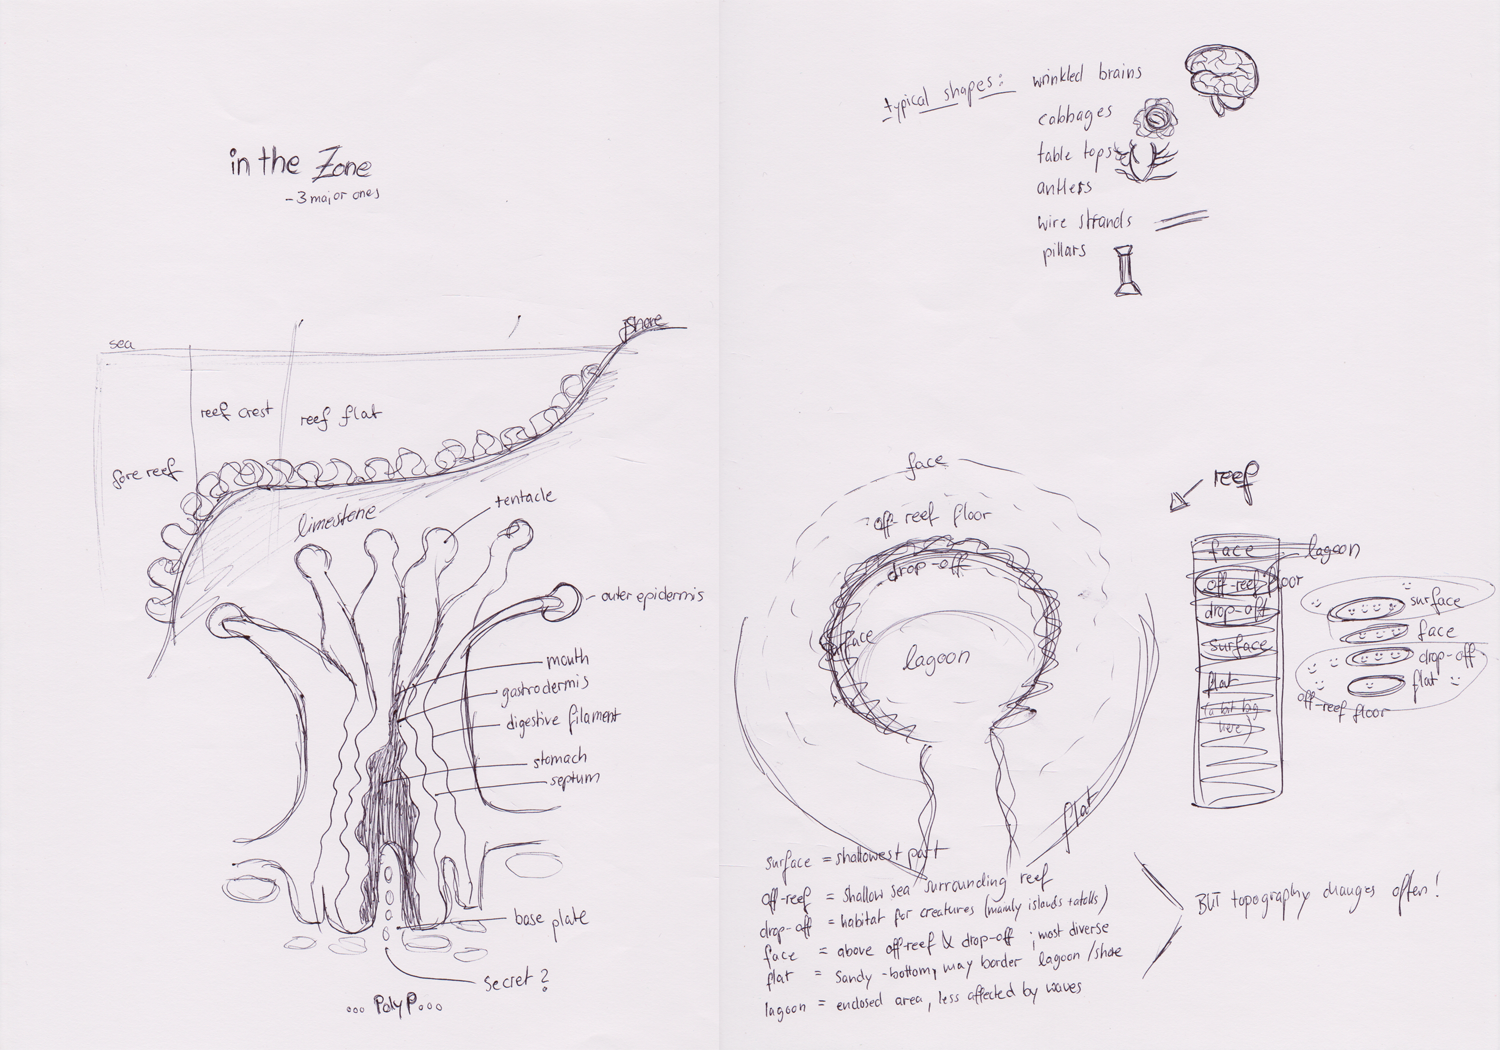 in the Zone
- 3 major ones
sea
shore
reef crest
reef flat
fore reef
limestone
tentacle
outer epidermis
mouth
gastrodermis
digestive filament
stomach
septum
base plate
secret?
... Polyp...
typical shapes:
wrinkled brains
cabbages
table tops
antlers
wire strands
pillars
face
off-reef floor
drop-off
surface
lagoon
flat
reef
face
lagoon
off-reef floor
drop-off
surface
flat
(a bit big
here)
surface
face
drop-off
flat
off-reef floor
surface = shallowest part
off-reef = shallow sea surrounding reef
drop-off = habitat for creatures (mainly islands + atolls)
face = above off-reef & drop-off ; most diverse
flat = sandy-bottom, may border lagoon/shore
lagoon = enclosed area, less affected by waves
BUT topography changes often!